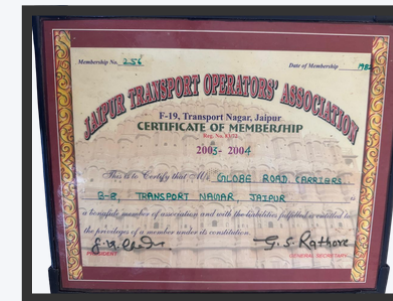 Membership No. 256 Date of Membership
JAIPUR TRANSPORT OPERATORS' ASSOCIATION
F-19, Transport Nagar, Jaipur
CERTIFICATE OF MEMBERSHIP
2003- 2004
This is to Certify that M/s GLOBE ROAD CARRIERS
B-8, TRANSPORT NAGAR, JAIPUR
a bonafide member of association and with the liabilities fulfilled is entitled to
the privileges of a member under its constitution.
G.S. Rathore
PRESIDENT GENERAL SECRETARY